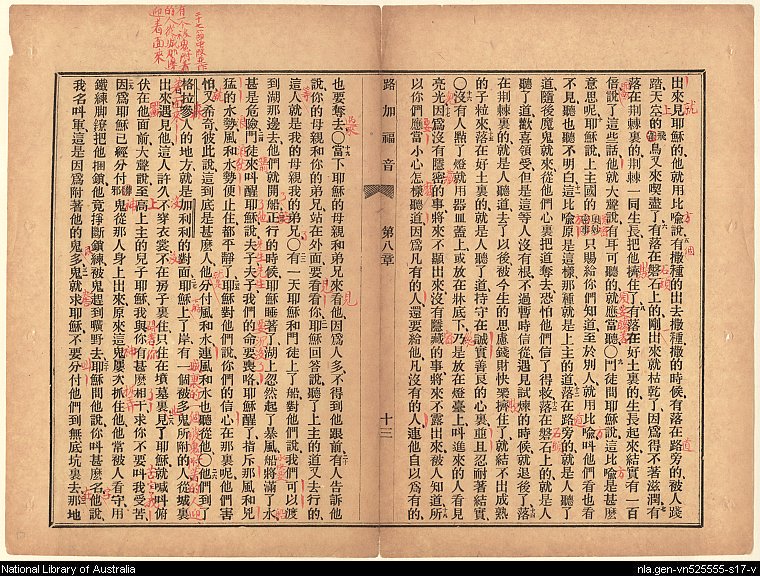 出來見耶穌的他就用比喻說有撒種的出去撒種撒的時候有落在路旁的被人踐
踏天空的飛鳥又來喫盡了有落在磐石上的剛出來就枯乾了因爲得不著滋潤有
落在荆棘裏的荆棘一同生長把他擠住了有落在好土裏的生長起來結實有一百
倍說了這些話他就大聲說有耳可聽的就應當聽〇門徒問耶穌說這比喻是甚麼
意思呢耶穌說上主國的奧妙只賜給你們知道至於別人就用比喻叫他們看也看
不見聽也聽不明白這比喻原是這樣那種就是上主的道落在路旁的就是人聽了
道隨後魔鬼就來從他們心裏把道奪去恐怕他們信了得救落在磐石上的就是人
聽了道歡喜領受但是這等人沒有根不過暫時信從遇見試煉的時候就退後了落
在荆棘裏的就是人聽道去了以後被今生的思慮錢財快樂擠住了就結不出成熟
的子粒來落在好土裏的就是人聽了道持守在誠實善良的心裏並且忍耐著結實
〇沒有人點了燈就用器皿蓋上或放在牀底下乃是放在燈臺上叫進來的人看見
亮光因爲沒有隱密的事將來不顯出來沒有隱藏的事將來不露出來被人知道所
以你們應當小心怎樣聽道因爲凡有的人還要給他凡沒有的人連他自以爲有的
路加福音
第八章
十三
也要奪去〇當下耶穌的母親和弟兄來看他因爲人多不得到他跟前有人告訴他
說你的母親和你的弟兄站在外面要看你耶穌回答說聽了上主的道又去行的
這人就是我的母親我的弟兄〇有一天耶穌和門徒上了船對他們說我們可以渡
到湖那邊去他們就開船正行的時候耶穌睡著了湖上忽然起了暴風船將滿了水
甚是危險門徒來叫醒耶穌說夫子夫子我們的命要喪咯耶穌醒了指斥那風和兇
猛的水勢風和水勢便止住都平靜了耶穌對他們說你們的信心在那裏呢他們害
怕又希奇彼此說這到底是甚麼人他分付風和水連風和水也聽從他〇他們到了
格拉參人的地方就是加利利的對面耶穌上了岸有一個被多鬼所附的人從城裏
出來遇見他這人許久不穿衣裳不在房子裏住只住在墳墓裏見了耶穌就喊叫俯
伏在他面前大聲說至高上主的兒子耶穌我與你有甚麼相干求你不要叫我受苦
因爲耶穌已經分付邪鬼從那人身上出來原來這鬼屢次抓住他他常被人看守用
鐵練腳鐐把他捆鎖他竟掙斷鎖練被鬼趕到曠野去耶穌問他說你叫甚麼名他說
我名叫軍這是因爲附著他的鬼多鬼就求耶穌不要分付他們到無底坑裏去那地
National Library of Australia
nla.gen-vn525555-s17-v